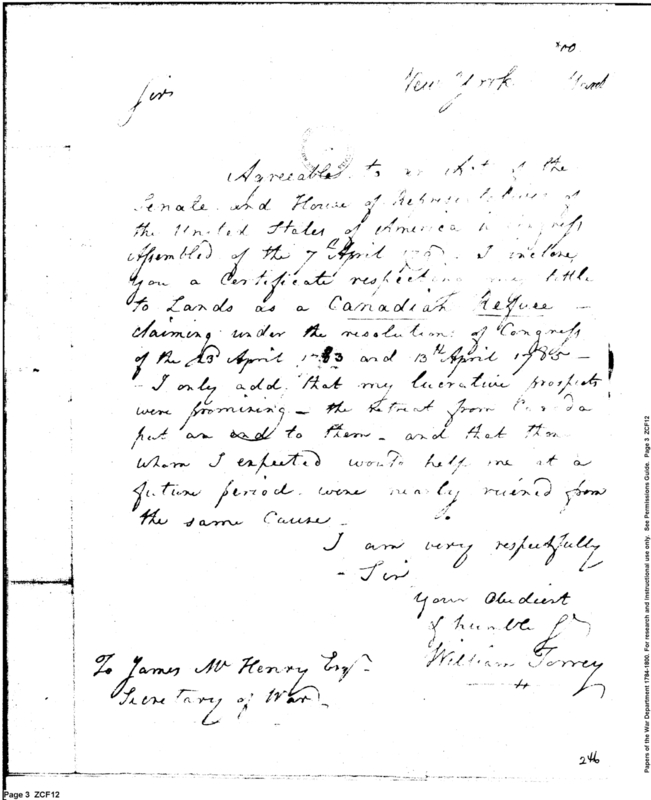 New York
Sir
Agreeable to an Act of the
Senate and House of Representatives of
the United States of America in Congress
Assembled of the 7th April I inclose
you a Certificate respecting my title
to Lands as a Canadian Refugee -
claiming under the resolutions of Congress
of the 23d April 1783 and 13th April 1785 -
- I only add that my lucrative prospects
were promising - the retreat from Canada
put an end to them - and that those
whom I expected would help me at a
future period were nearly ruined from
the same Cause -
I am very respectfully
- Sir
Your Obedient
& humble St
William Torrey
To James Mc Henry Esqr
Secretary of War
246
Page 3 ZCF12
Papers of the War Department 1784-1800. For research and instructional use only. See Permissions Guide. Page 3 ZCF12